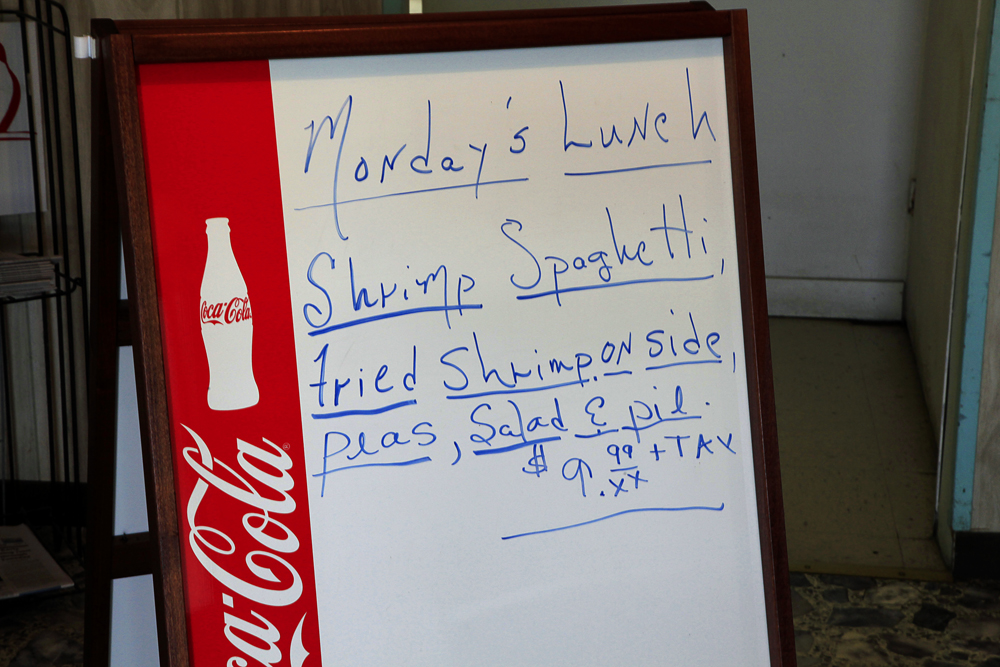 Monday's Lunch
Shrimp Spaghetti,
Fried Shrimp on side,
peas, Salad & pie.
$9.99/xx + TAX
Coca-Cola
Coca-Cola